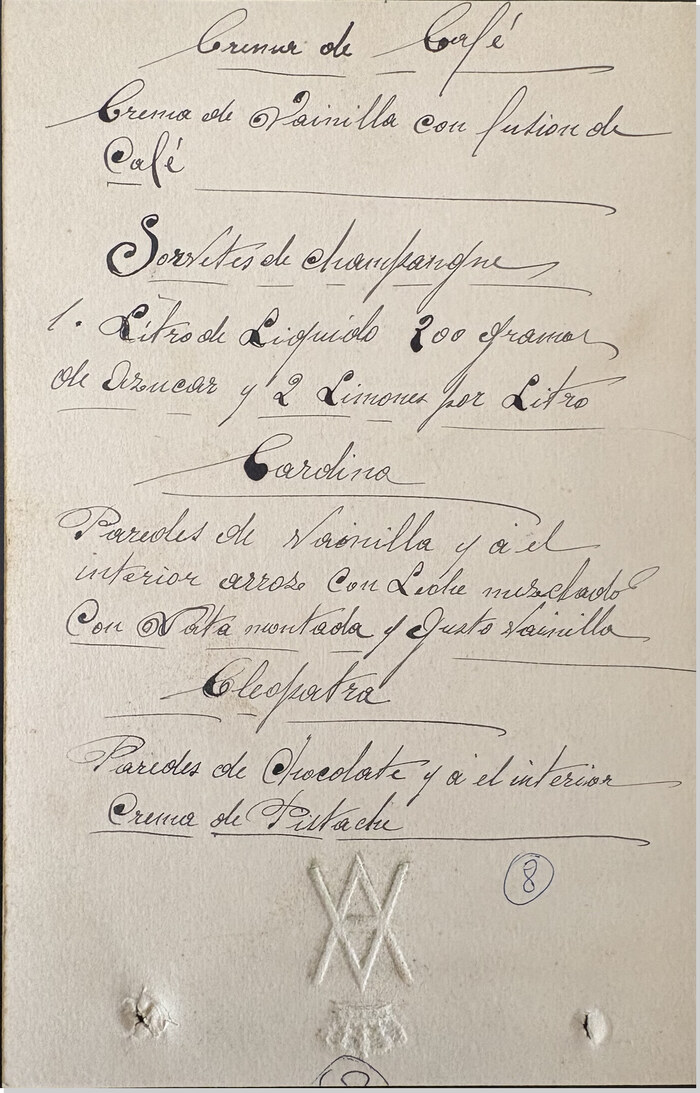 Crema de Café
Crema de Vainilla con fusion de
Café
Sorvetes de champangne
1. Litro de Liquido 200 gramos
de Azucar y 2 Limones por Litro
Cardina
Paredes de Vainilla y á el
interior arroz Con Leche mezclado
Con Nata montada y Gusto Vainilla
Cleopatra
Paredes de Chocolate y á el interior
Crema de Pistache
8